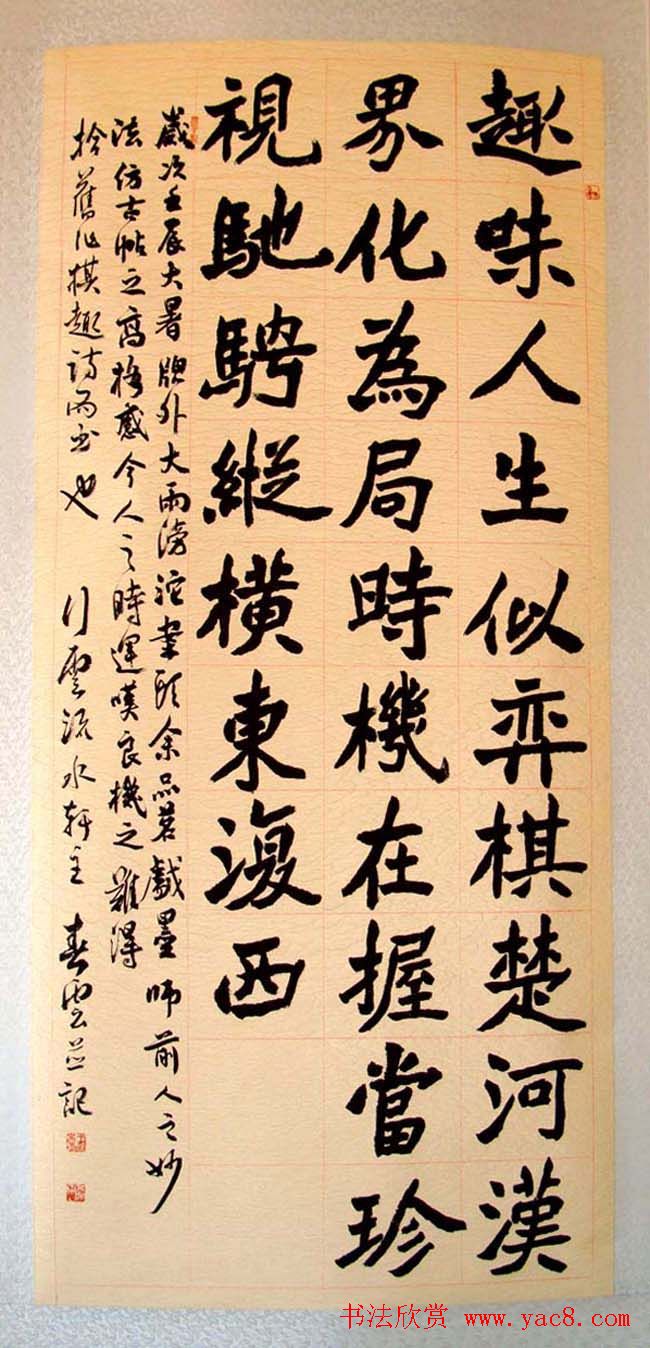 趣味人生似弈棋楚河漢
界化為局時機在握當珍
視馳騁縱橫東復西
歲次壬辰大暑牕外大雨滂沱案頭余品茗戲墨師前人之妙
法仿古帖之高格感今人之時運嘆良機之難得
拾舊作棋趣詩而書也 行雲流水軒主 春雲并記
书法欣赏 www.yac8.com